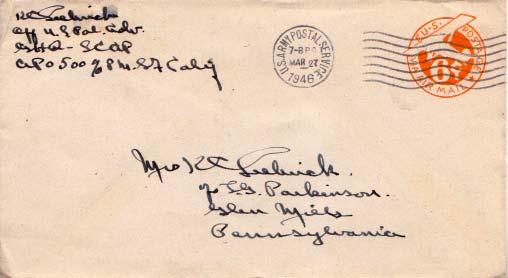 KC Sebrick
Off U.S Pol. Adv.
GHQ - SCAP
APO 500 % P M. S F Calif
U.S. ARMY POSTAL SERVICE
7-8 PM
MAR 27
1946
U.S. POSTAGE
VIA AIR MAIL
6¢
Mrs KC Sebrick.
% L G Parkinson.
Glen Mills
Pennsylvania